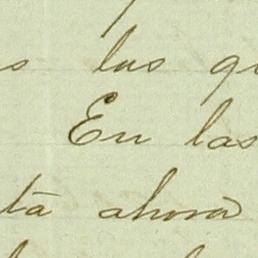 s las qu
En las
ta ahora